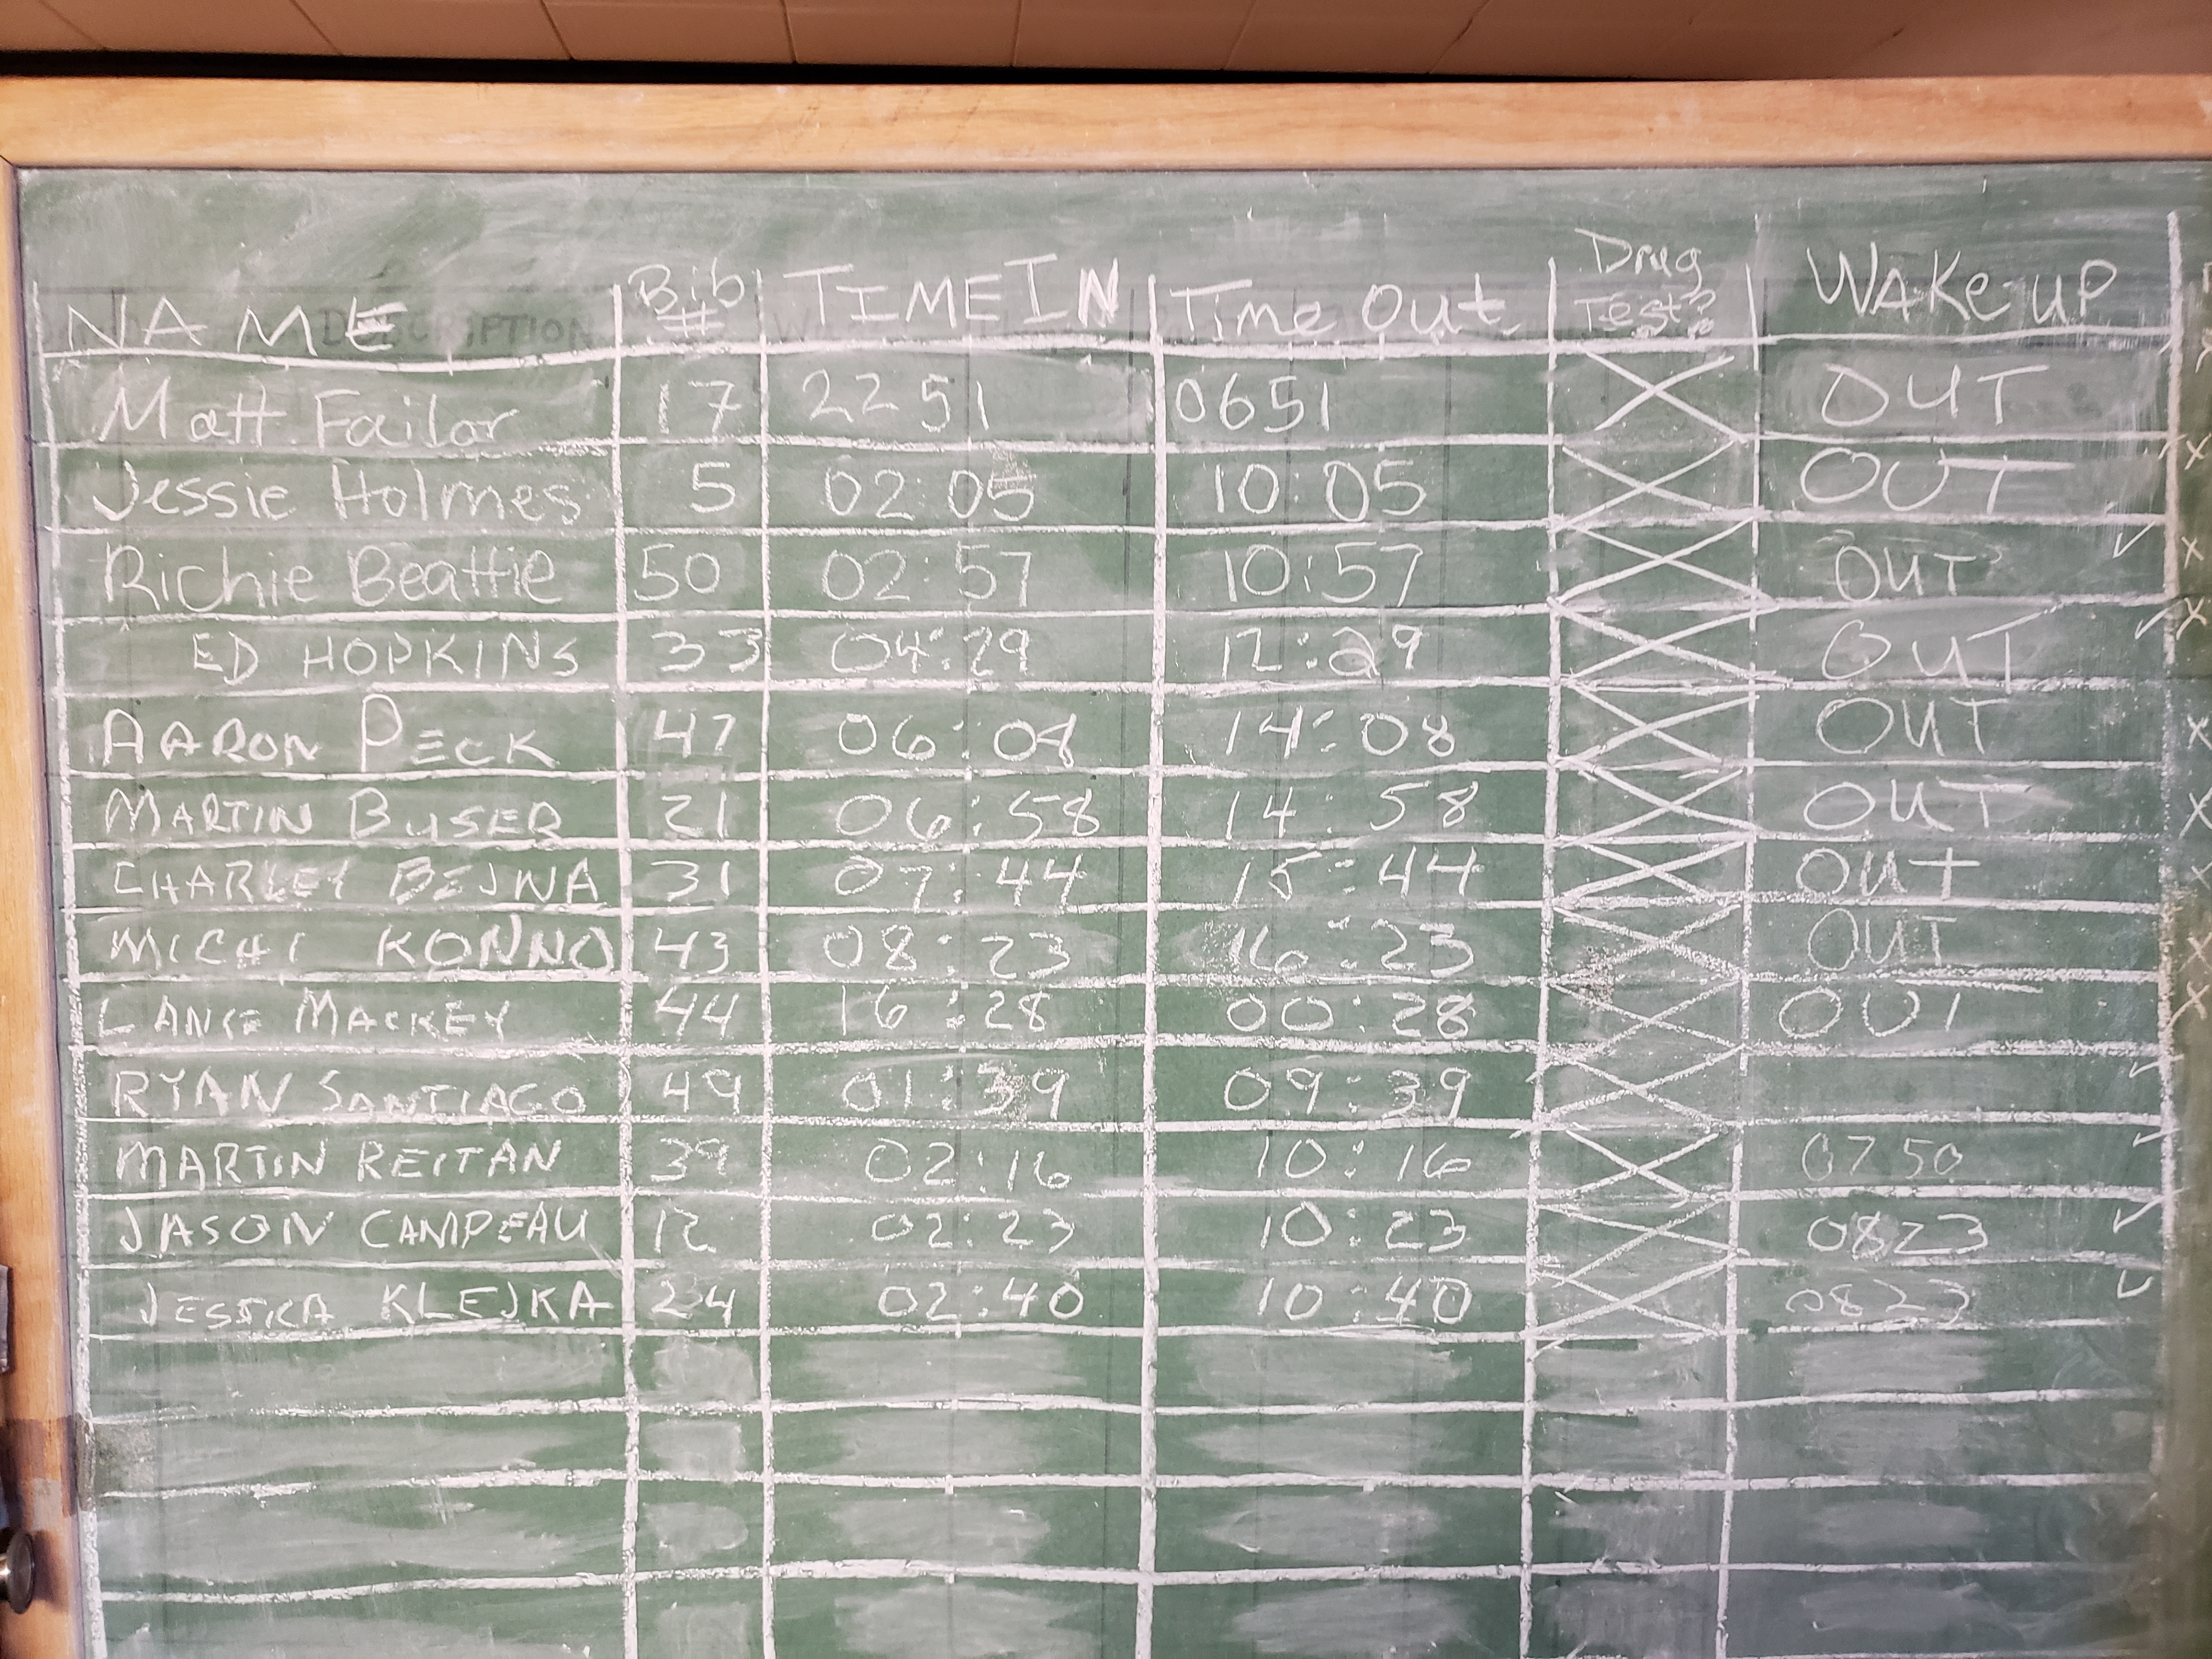 NAME Bib # TIME IN Time Out Drug Test? WAKE-UP
DESCRIPTION
Matt Failor 17 22 51 0651 X OUT
Jessie Holmes 5 02:05 10:05 X OUT
Richie Beattie 50 02:57 10:57 X OUT ✓ x
ED HOPKINS 33 04:29 12:29 X OUT ✓ x
AARON PECK 47 06:08 14:08 X OUT x
MARTIN BUSER 21 06:58 14:58 X OUT x
CHARLEY BEJNA 31 07:44 15:44 X OUT x
MICHI KONNO 43 08:23 16:23 X OUT x
LANCE MACKEY 44 16:28 00:28 X OUT x
RYAN SANTIAGO 49 01:39 09:39 X ✓
MARTIN REITAN 39 02:16 10:16 X 0750 ✓
JASON CAMPEAU 12 02:23 10:23 X 0823 ✓
JESSICA KLEJKA 24 02:40 10:40 X 0823 ✓